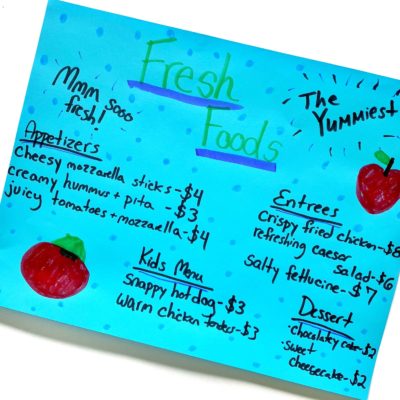 Fresh
Foods
Mmm sooo
fresh!
The
Yummiest
Appetizers
cheesy mozzarella sticks-$4
creamy hummus + pita -$3
juicy tomatoes + mozzarella-$4
Entrees
crispy fried chicken-$8
refreshing caesar
salad-$6
salty fettucine-$7
Kids Menu
snappy hotdog-$3
warm chicken tenders-$3
Dessert
·chocolatey cake-$2
·sweet
cheesecake-$2